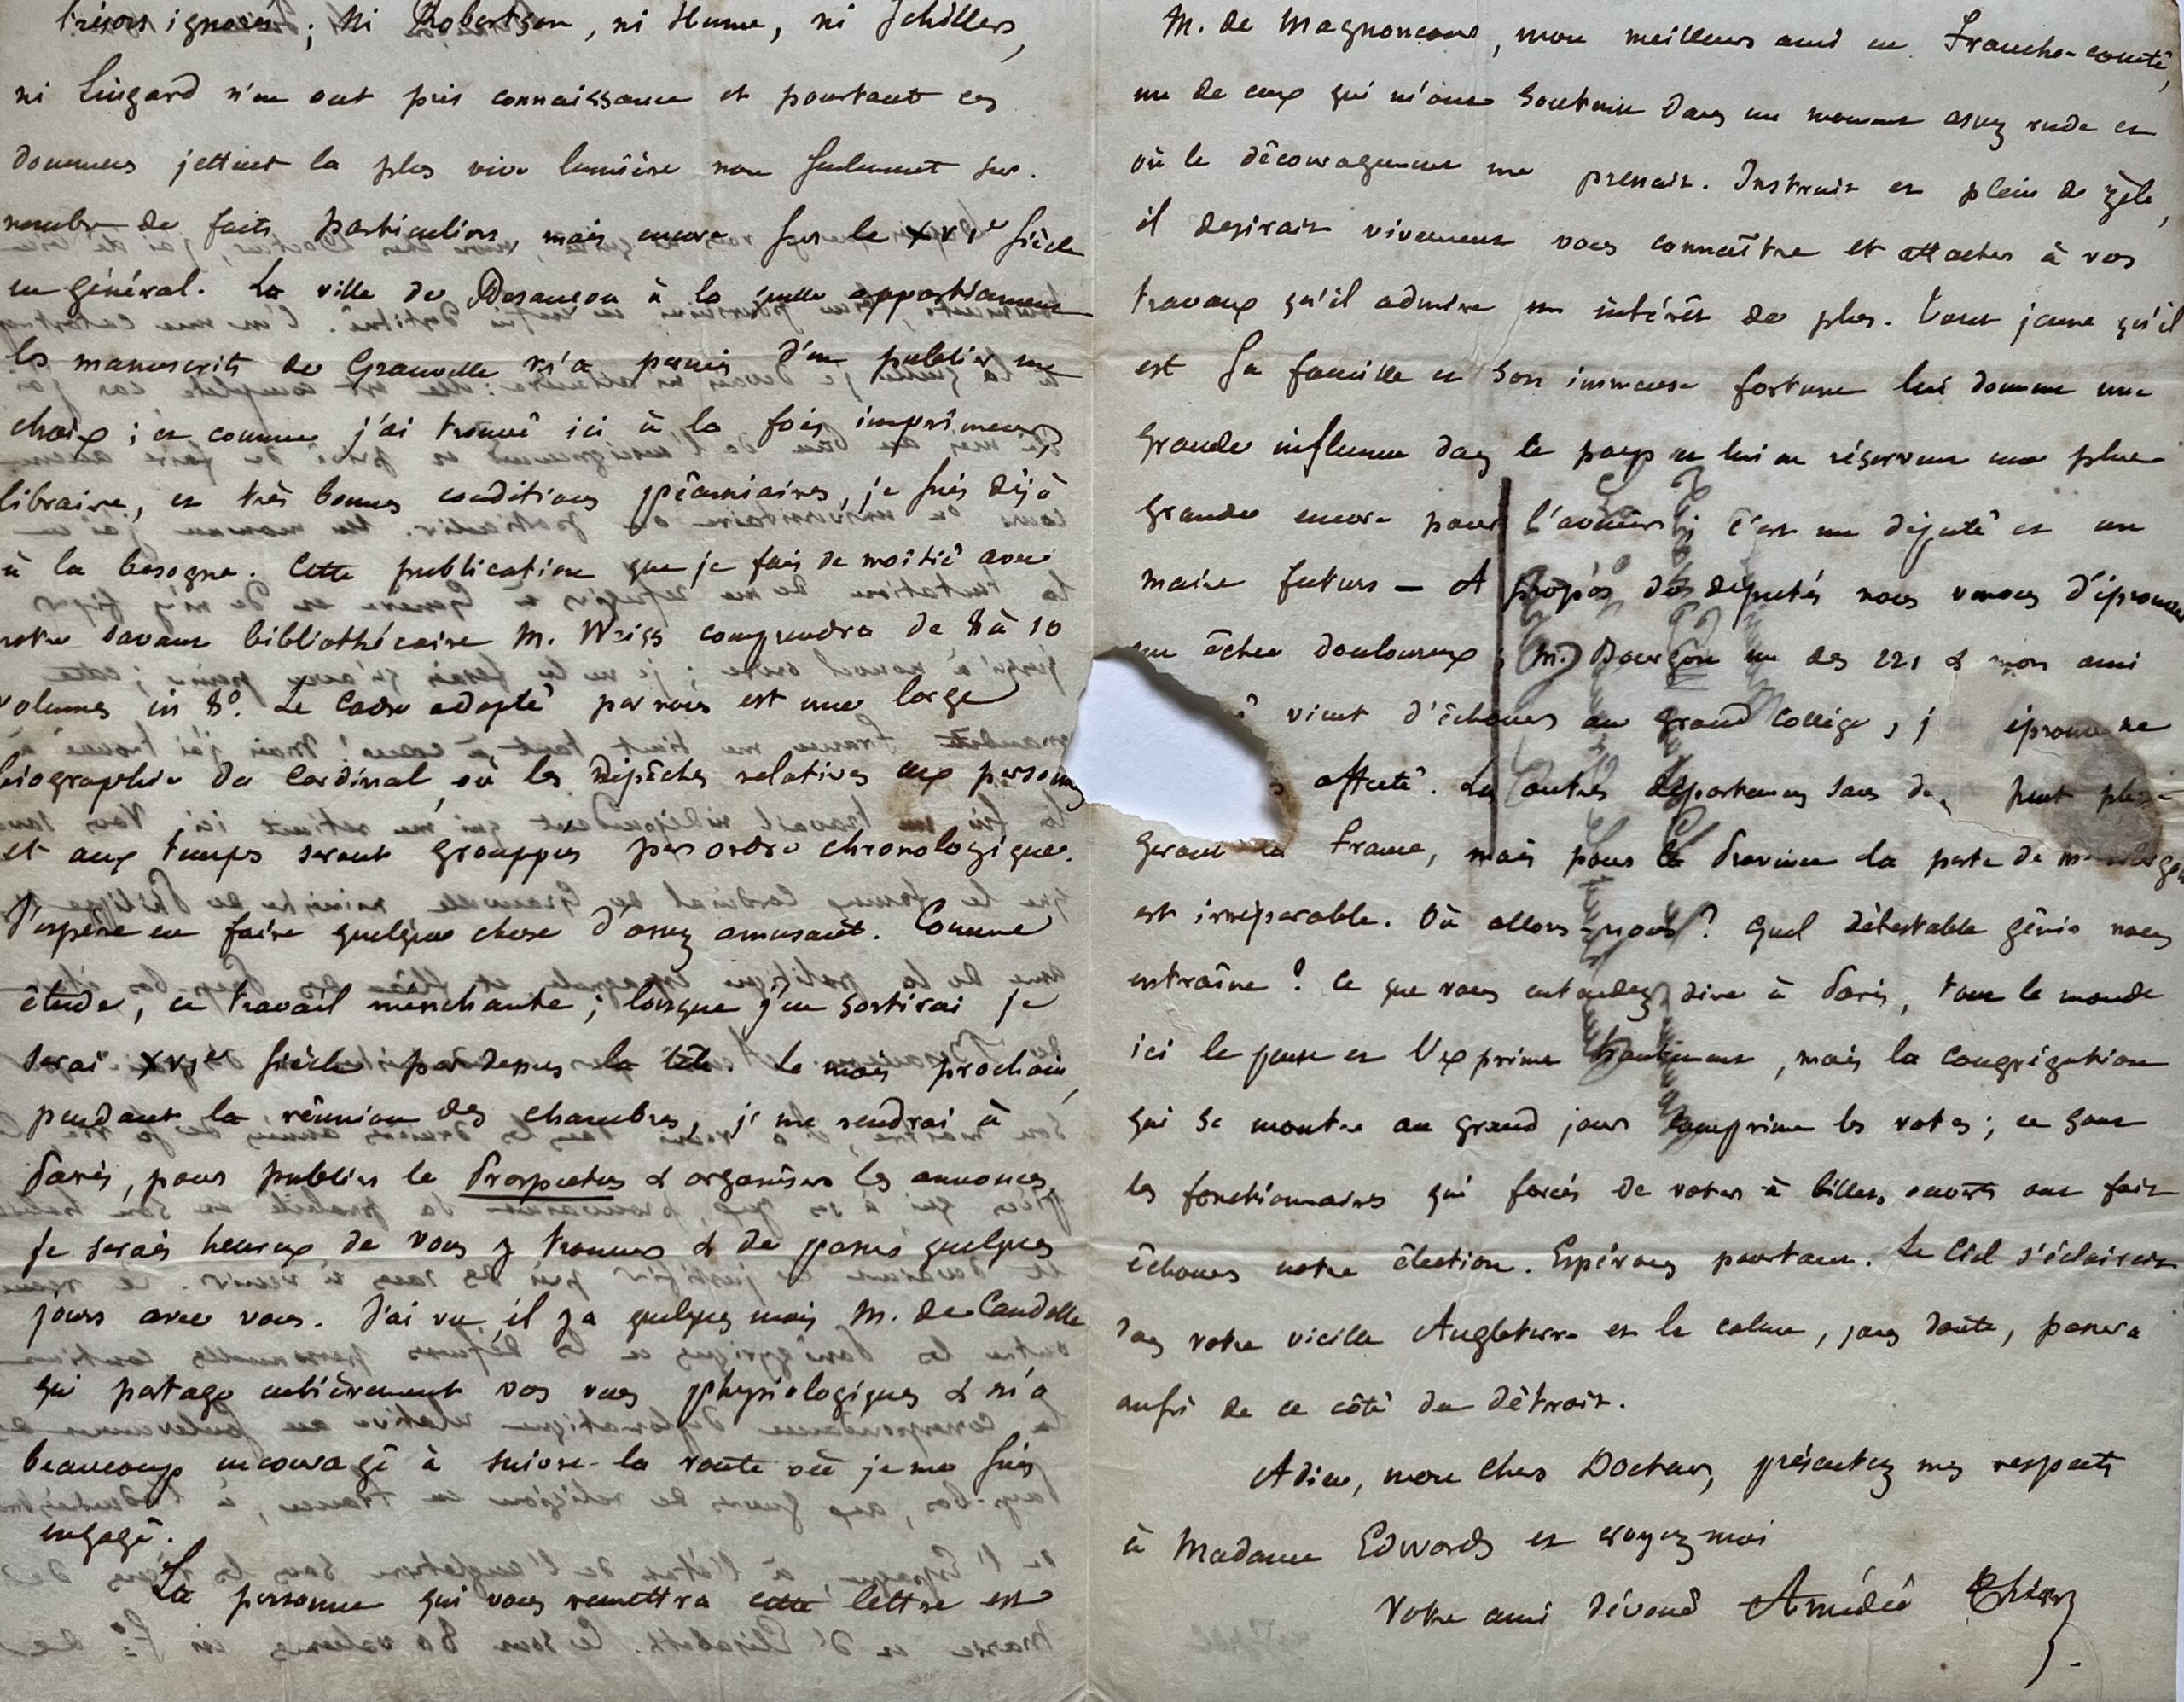 trésors ignorés ; ni Robertson, ni Hume, ni Schiller,
ni Lingard n'en ont pris connaissance et pourtant ces
documens jettent la plus vive lumière non seulement sur
nombre de faits particuliers, mais encore sur le XVIe siècle
en général. La ville de Besançon à la quelle appartiennent
les manuscrits de Granvelle m'a permis d'en publier un
choix ; et comme j'ai trouvé ici à la fois imprimeur,
libraire, et très bonnes conditions pécuniaires, je suis déjà
à la besogne. Cette publication que je fais de moitié avec
notre savant bibliothécaire M. Weiss comprendra de 8 à 10
volumes in 8°. Le cadre adopté par nous est une large
biographie du Cardinal, où les dépêches relatives aux personnes
et aux temps seront grouppées par ordre chronologique.
J'espère en faire quelque chose d'assez amusant. Comme
étude, ce travail m'enchante ; lorsque j'en sortirai je
serai XVIe siècle par dessus la tête. Le mois prochain,
pendant la réunion des chambres, je me rendrai à
Paris, pour publier le Prospectus & organiser les annonces.
Je serais heureux de vous y trouver & de passer quelques
jours avec vous. J'ai vu, il y a quelques mois M. de Candolle
qui partage entièrement vos vues physiologiques & m'a
beaucoup encouragé à suivre la route où je me suis
engagé.
La personne qui vous remettra cette lettre est
M. de Magnoncourt, mon meilleur ami en Franche-comté,
un de ceux qui m'ont soutenu dans un moment assez rude et
où le découragement me prenait. Instruit et plein de zèle,
il desirait vivement vous connaître et attacher à vos
travaux qu'il admire un intérêt de plus. Tout jeune qu'il
est sa famille et son immense fortune lui donnent une
grande influence dans le pays et lui en réservent une plus
grande encore pour l'avenir ; c'est un député et un
maire futurs — A propos de députés nous venons d'éprouver
un échec douloureux ; M. Bourgon un des 221 & mon ami
vient d'échouer au grand Collège, j éprouve ne
affecté. Les autres départemens sans peut
geront la France, mais pour la Province la perte de M.
est irréparable. Où allons-nous ? Quel détestable génie nous
entraîne ? Ce que vous entendez dire à Paris, tout le monde
ici le pense et l'exprime hautement, mais la congrégation
qui se montre au grand jour comprime les votes ; ce sont
les fonctionnaires qui forcés de voter à billets ouverts ont fait
échouer notre élection. Espérons pourtant. Le Ciel s'éclaircit
dans votre vieille Angleterre et le calme, sans doute, passera
aussi de ce côté du détroit.
Adieu, mon cher Docteur, présentez mes respects
à Madame Edwards et croyez moi
Votre ami dévoué Amédée Thierry